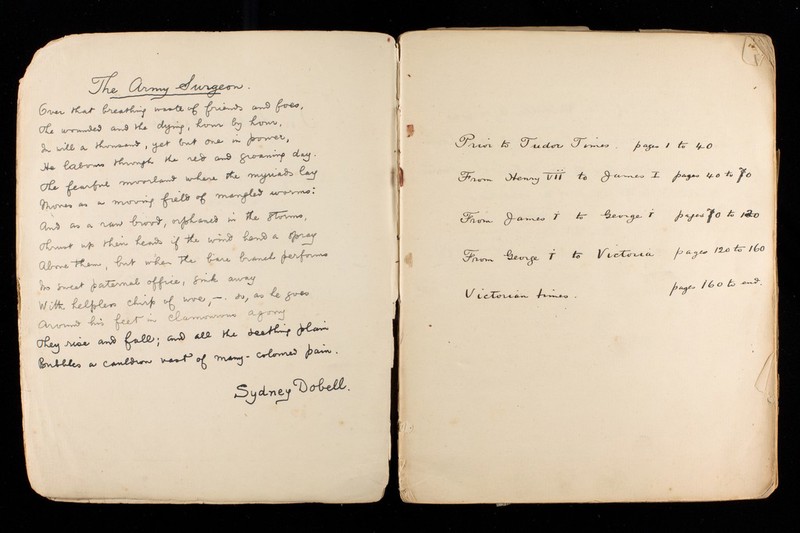 The Army Surgeon.
Over that breathing waste of friends and foes,
The wounded and the dying, hour by hour,
In will a thousand, yet but one in power,
He labours through the red and groaning day.
The fearful moorland where the myriads lay
Moves as a moving field of mangled worms:
And as a raw brood, orphaned in the storms,
Thrust up their heads if the wind bend a spray
Above them, but when the bare branch performs
No sweet paternal office, sink away
With helpless chirp of woe, – so, as he goes
Around his feet in clamourous agony
They rise and fall; and all the seething plain
Bubbles a cauldron vast of many-coloured pain.
Sydney Dobell.
Prior to Tudor Times. pages 1 to 40
From Henry VII to James I pages 40 to 70
From James I to George I pages 70 to 120
From George I to Victoria pages 120 to 160
Victorian times. pages 160 to end.